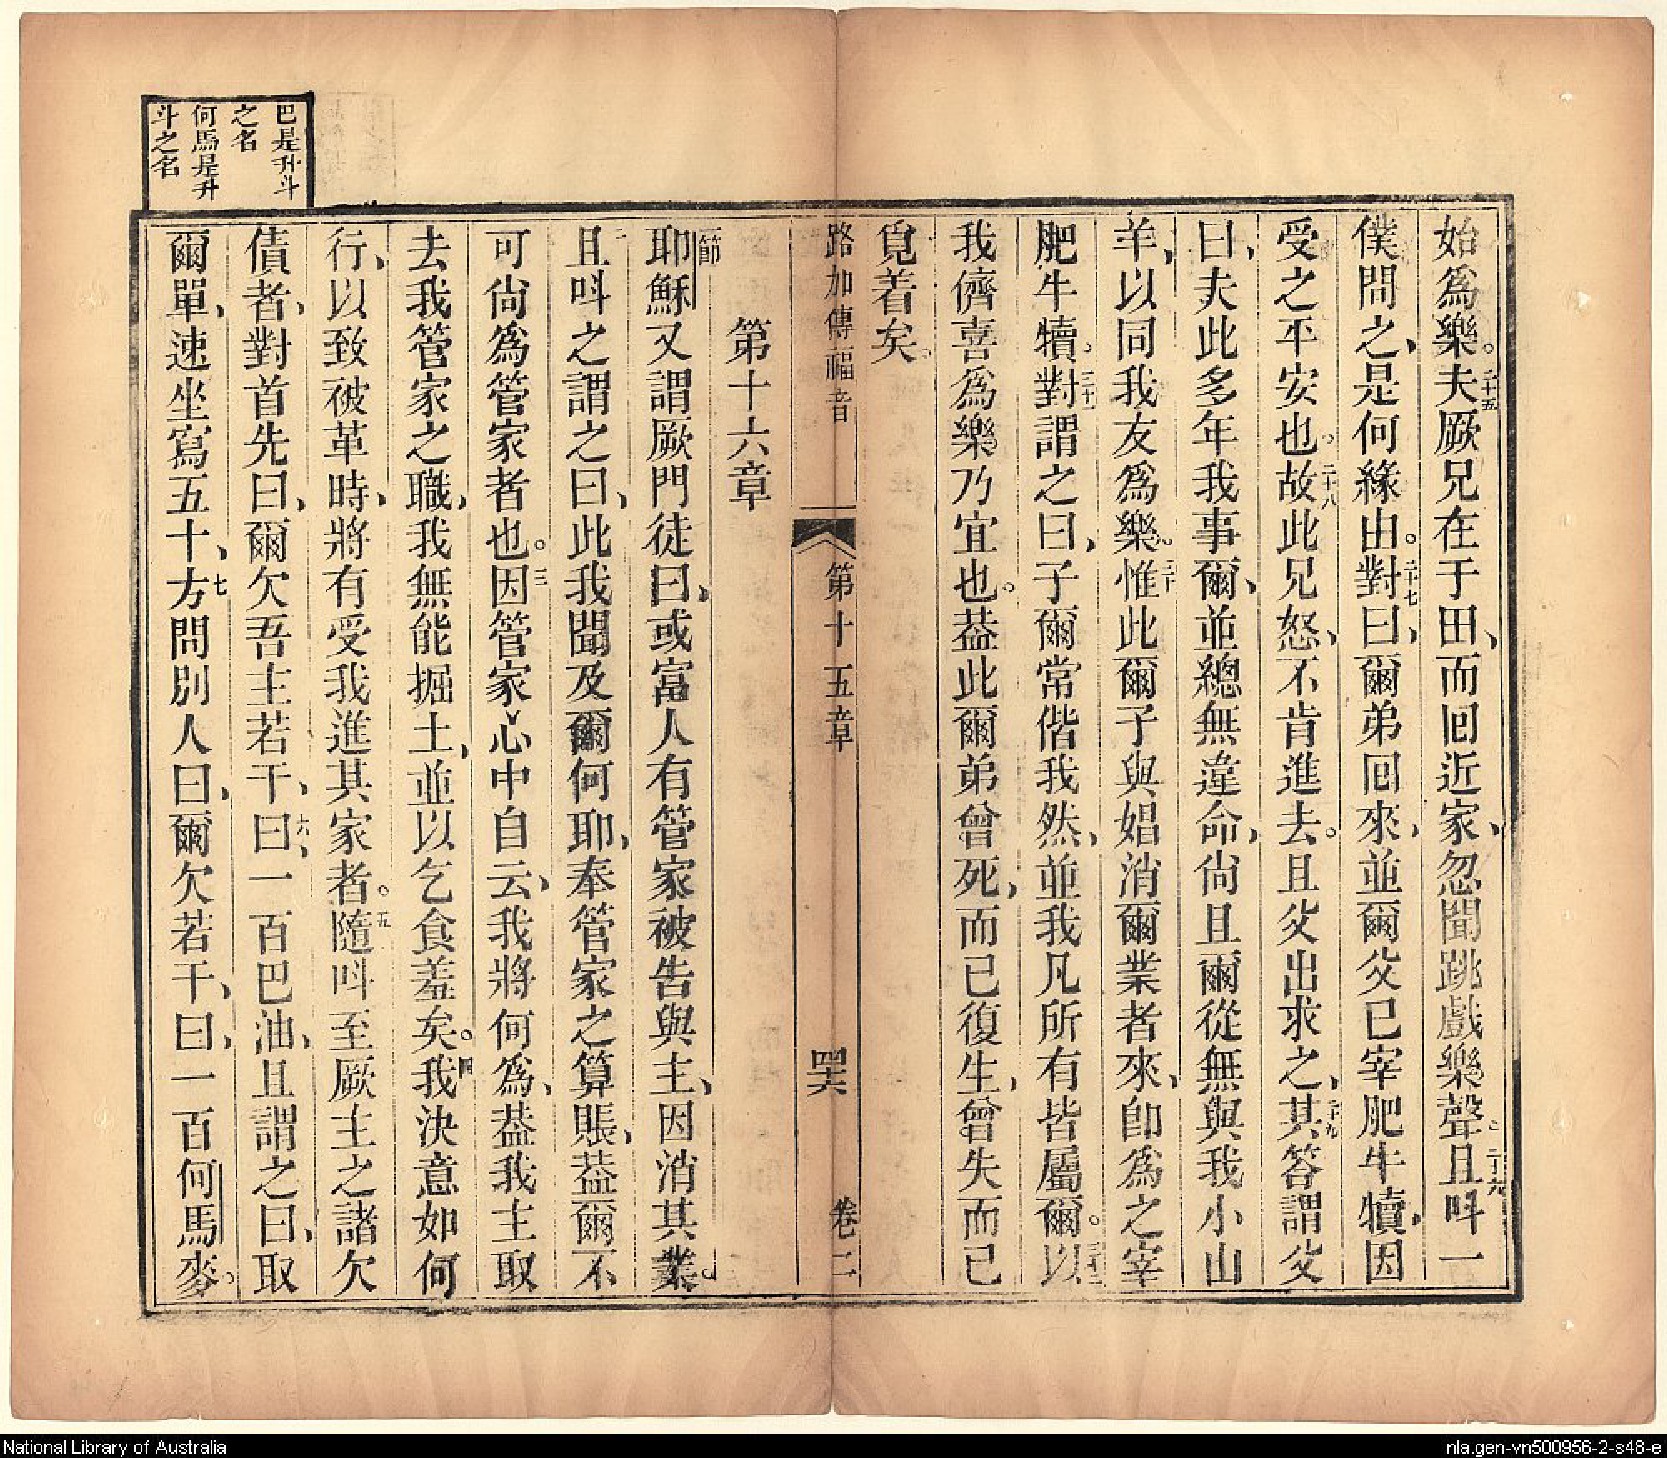 始爲樂。二十五夫厥兄在于田、而囘近家、忽聞跳戲樂聲。二十六且呌一
僕問之、是何緣由。二十七對曰、爾弟囘來、並爾父已宰肥牛犢、因
受之平安也。二十八故此兄怒、不肯進去。且父出求之、二十九其答謂父
曰、夫此多年我事爾、並總無違命、尙且爾從無與我小山
羊、以同我友爲樂。三十惟此爾子與娼消爾業者來、卽爲之宰
肥牛犢。三十一對謂之曰、子爾常偕我然、並我凡所有皆屬爾。三十二以
我儕喜爲樂乃宜也。葢此爾弟曾死、而已復生、曾失而已
覓着矣。
路加傳福音 第十五章 四六 卷二
第十六章
一節耶穌又謂厥門徒曰、或富人有管家被告與主、因消其業。
二且呌之謂之曰、此我聞及爾何耶、奉管家之算賬、葢爾不
可尙爲管家者也。三因管家心中自云、我將何爲、葢我主取
去我管家之職、我無能掘土、並以乞食羞矣。四我決意如何
行、以致被革時、將有受我進其家者。五隨呌至厥主之諸欠
債者、對首先曰、爾欠吾主若干、六曰、一百巴油、且謂之曰、取
爾單、速坐寫五十、七方問別人曰、爾欠若干、曰、一百何馬麥。
巴是升斗
之名
何馬是升
斗之名
National Library of Australia
nla.gen-vn500956-2-s48-e